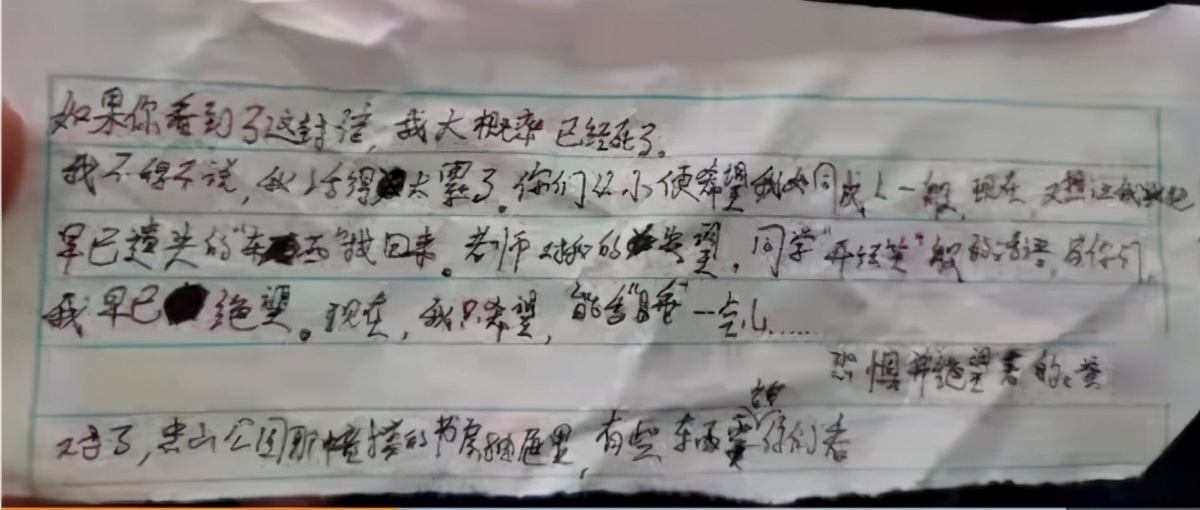 如果你看到了这封信,我大概率已经死了。
我不得不说,我上学得太累了。你们从小便希望我如同成人一般,现在,又想让我把
早已遗失的"东西"找回来。老师对我的失望,同学"开玩笑"般的话语,与你们,
我早已绝望。现在,我只希望,能含"睡"一点儿……
恐惧并绝望着的
对了,山公园那幢楼的书房抽屉里,有些东西要给你们看